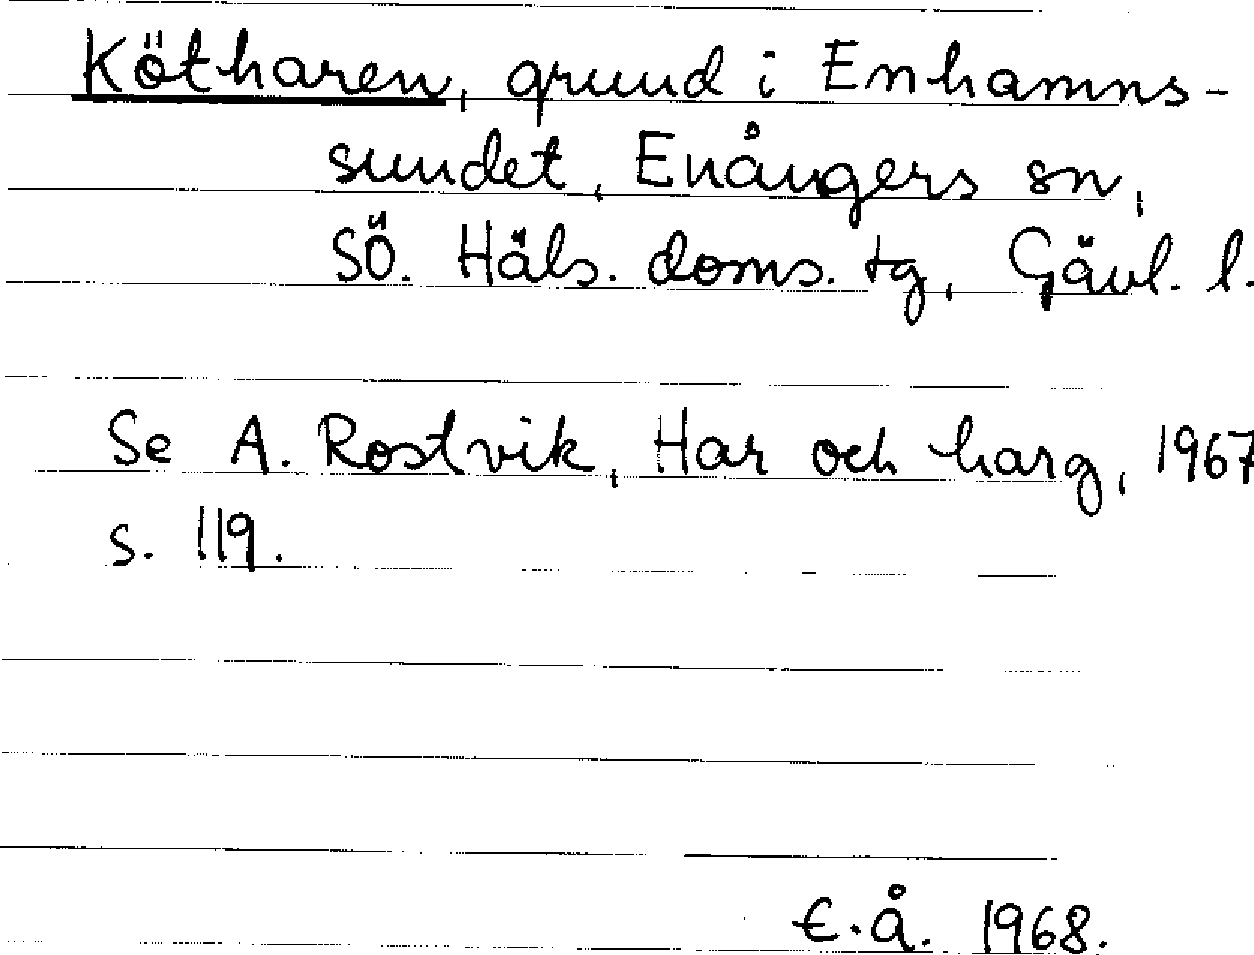 Kötharen, grund i Enhamns-
sundet, Enångers sn,
SÖ. Häls. doms. tg, Gävl. l.
Se A. Rostvik, Har och harg, 1967
s. 119.
E.Å. 1968.